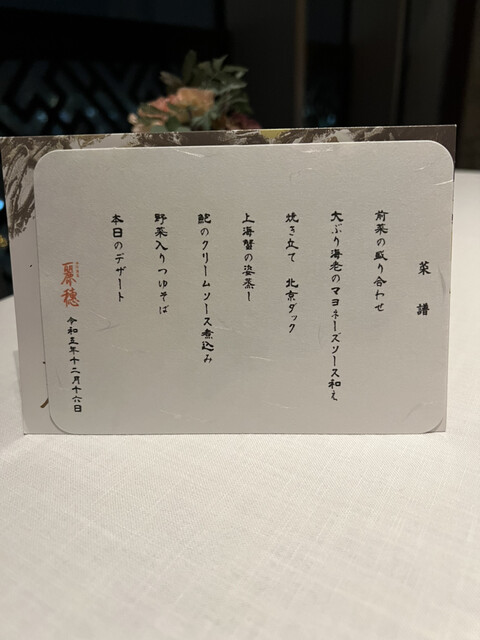 菜譜
前菜の盛り合わせ
大ぶり海老のマヨネーズソース和え
焼き立て 北京ダック
上海蟹の姿蒸し
鮑のクリームソース煮込み
野菜入りつゆそば
本日のデザート
麗穂
令和五年十二月十六日